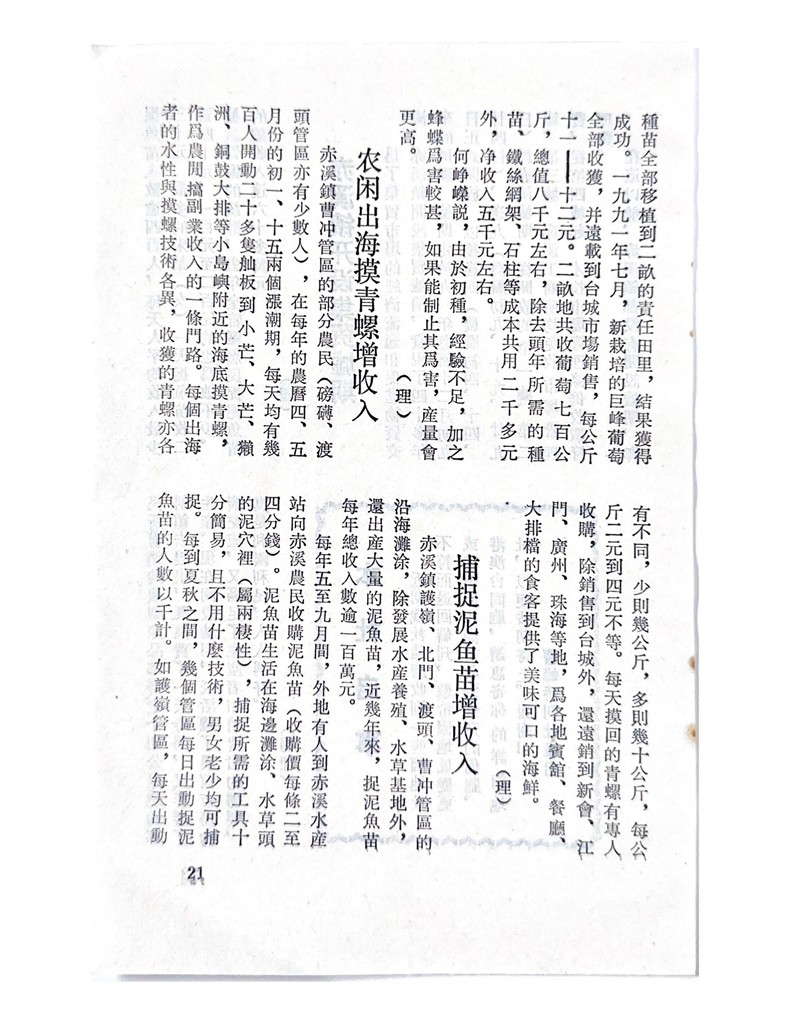 種苗全部移植到二畝的責任田里，結果獲得
成功。一九九一年七月，新栽培的巨峰葡萄
全部收獲，并遠載到台城市場銷售，每公斤
十一——十二元。二畝地共收葡萄七百公
斤，總值八千元左右，除去頭年所需的種
苗、鐵絲網架、石柱等成本共用二千多元
外，净收入五千元左右。
何崢嶸説，由於初種，經驗不足，加之
蜂蝶爲害較甚，如果能制止其爲害，産量會
更高。
（理）
农闲出海摸青螺增收入
赤溪鎮曹冲管區的部分農民（磅礴、渡
頭管區亦有少數人），在每年的農曆四、五
月份的初一、十五兩個漲潮期，每天均有幾
百人開動二十多隻舢板到小芒、大芒、獺
洲、銅鼓大排等小島嶼附近的海底摸青螺，
作爲農閒搞副業收入的一條門路。每個出海
者的水性與摸螺技術各異，收獲的青螺亦各
有不同，少則幾公斤，多則幾十公斤，每公
斤二元到四元不等。每天摸回的青螺有專人
收購，除銷售到台城外，還遠銷到新會、江
門、廣州、珠海等地，爲各地賓館、餐廳、
大排檔的食客提供了美味可口的海鮮。
（理）
捕捉泥鱼苗增收入
赤溪鎮護嶺、北門、渡頭、曹冲管區的
沿海灘涂，除發展水産養殖、水草基地外，
還出産大量的泥魚苗，近幾年來，捉泥魚苗
每年總收入數逾一百萬元。
每年五至九月間，外地有人到赤溪水産
站向赤溪農民收購泥魚苗（收購價每條二至
四分錢）。泥魚苗生活在海邊灘涂、水草頭
的泥穴裡（屬兩棲性），捕捉所需的工具十
分簡易，且不用什麽技術，男女老少均可捕
捉。每到夏秋之間，幾個管區每日出動捉泥
魚苗的人數以千計。如護嶺管區，每天出動
21